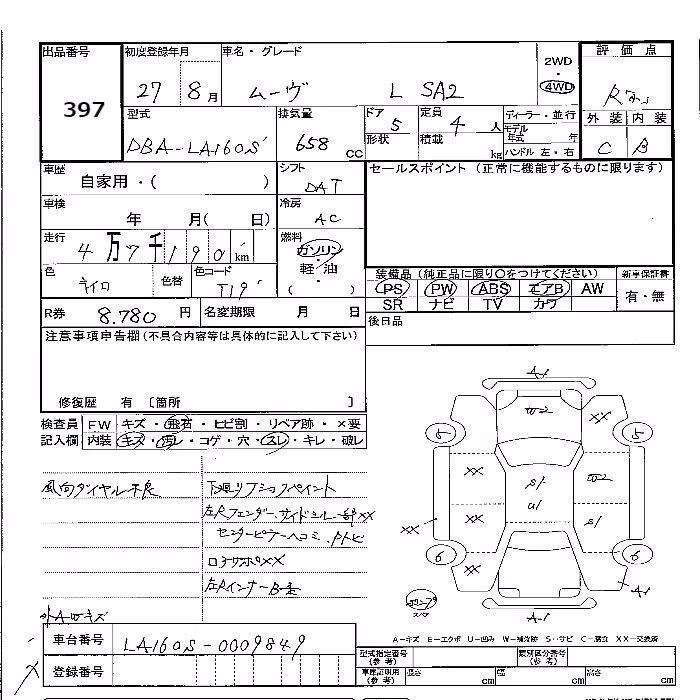 出品番号
397
初度登録年月
27 8月
車名・グレード
ムーヴ L SA2
2WD
4WD
評価点
R
外装 内装
C B
型式
DBA-LA160S
排気量
658 cc
ドア
5
形状
定員
4 人
積載 kg
ディーラー・並行
モデル
年式 年
ハンドル 左・右
車歴
自家用・( )
シフト
DAT
セールスポイント (正常に機能するものに限ります)
車検
年 月( 日)
冷房
AC
走行
4万7千190km
燃料
ガソリン
軽油
( )
色
キイロ
色替
色コード
T19
装備品(純正品に限り○をつけてください)
PS PW ABS エアB AW
SR ナビ TV カワ
新車保証書
有・無
R券 8.780 円
名変期限 月 日
後日品
注意事項申告欄(不具合内容等は具体的に記入して下さい)
修復歴 有 〔箇所 〕
検査員
記入欄
FW キズ・飛石・ヒビ割・リペア跡・×要
内装 キズ・汚レ・コゲ・穴・スレ・キレ・破レ
風向ダイヤル不良
下廻リフショクペイント
左Rフェンダー、サイドシル一部XX
センターピラーヘコミ、Pトビ
左RインナーB歪
A-1
W2
XX
5
5
XX
S1
W2
XX
U1
S1
XX
6
6
XX
A-1
A-1
スペア
A-キズ E-エクボ U-凹み W-補修跡 S-サビ C-腐食 XX-交換済
車台番号
LA160S-0009849
登録番号
型式指定番号
(参考)
類別区分番号
(参考)
車庫証明用
(参考)
長さ cm
幅 cm
高さ cm